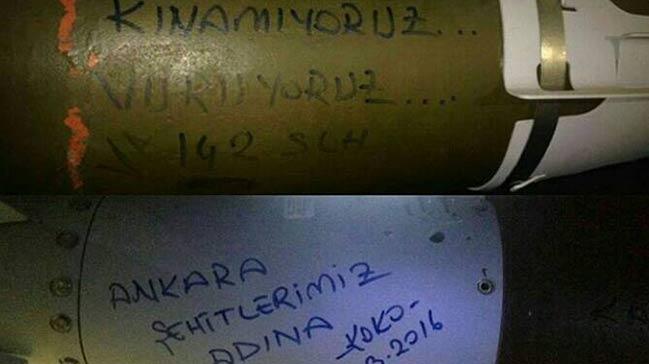 KINAMIYORUZ...
VURUYORUZ....
142 SLH
ANKARA
ŞEHİTLERİMİZ
ADINA
KOKO-
3.2016